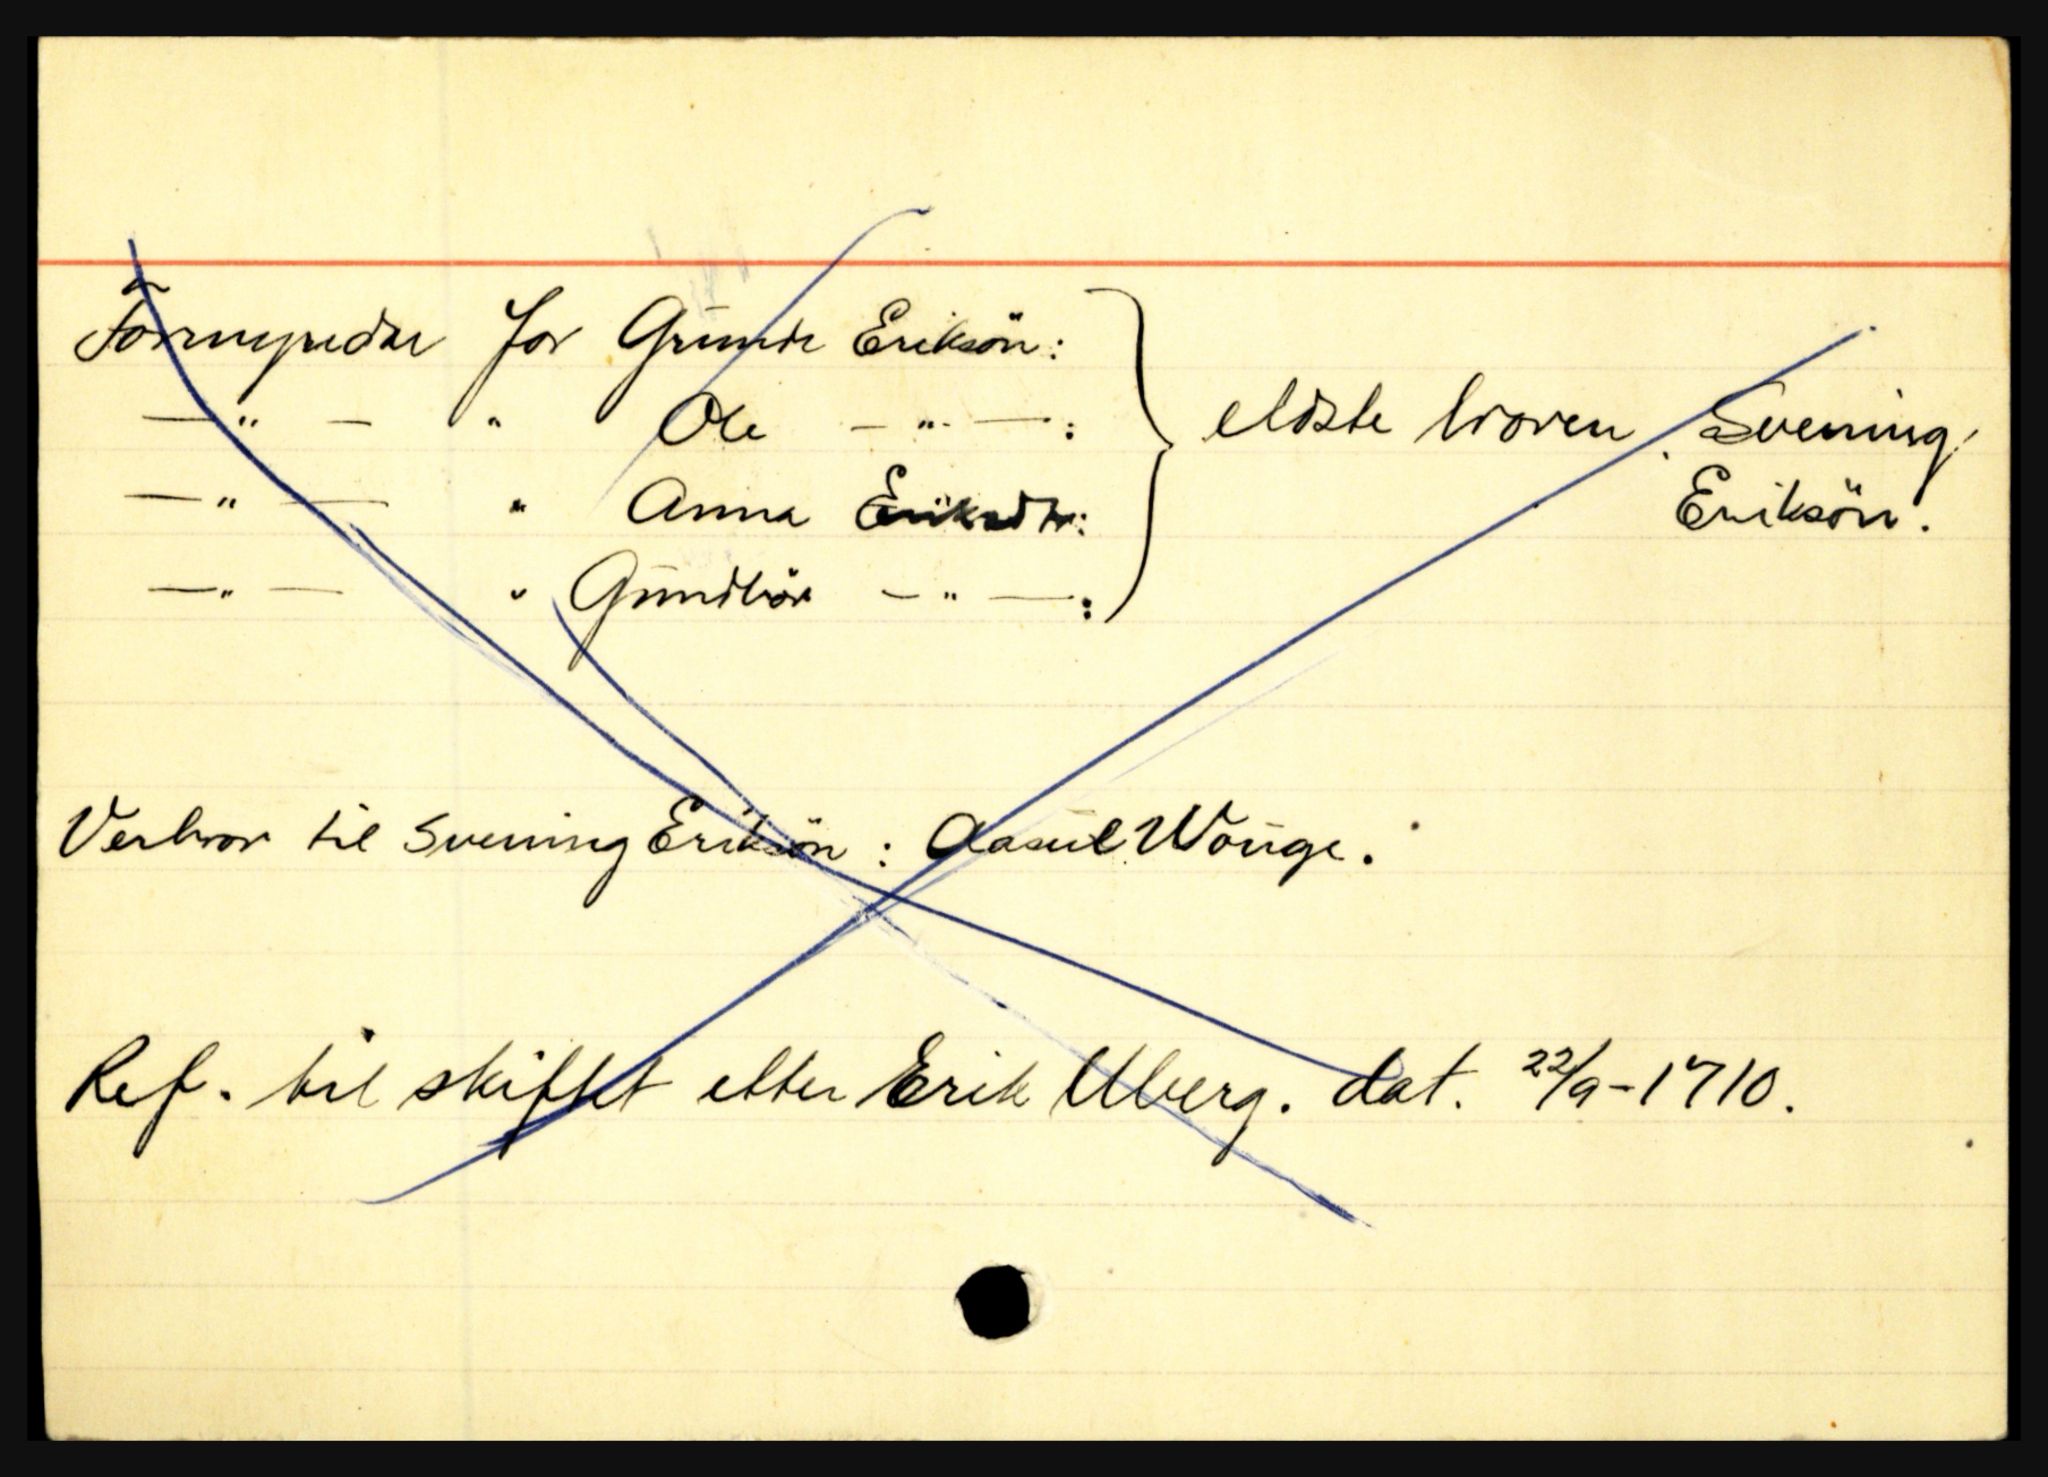 Formynder for Grunde Eriksön:
— " — " Ole — " — :
— " — " Anna Eriksdtr:
— " — " Gundbör — " — :
} eldste broren Svening
Eriksön.
Verbror til Svening Eriksön : Aasul Wouge.
Ref. til skiftet etter Erik Uberg. dat. 22/9-1710.